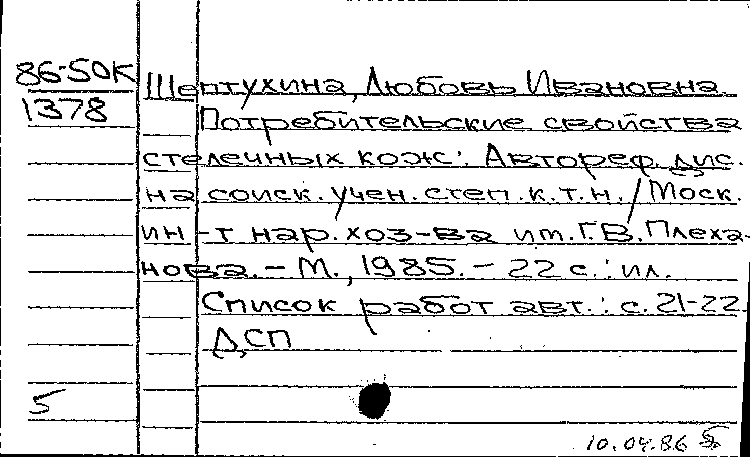 86-50К
1378
Шептухина, Любовь Ивановна.
Потребительские свойства
стелечных кож: Автореф. дис.
на соиск. учен. степ. к.т.н. / Моск.
ин-т нар. хоз-ва им. Г.В. Плеха-
нова. - М., 1985. - 22 с.: ил.
Список работ авт.: с. 21-22.
ДСП
5
10.04.86